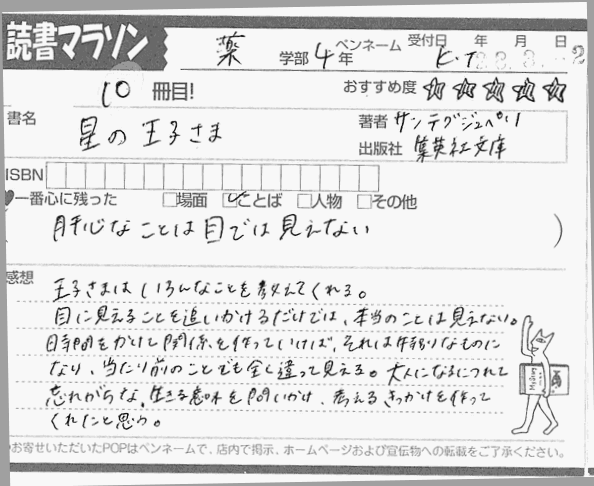 読書マラソン
薬 学部 4年 ペンネーム H.T 受付日 年 月 日
23.3.-2
10 冊目! おすすめ度 ☆☆☆☆☆
書名 星の王子さま
著者 サンテグジュペリ
出版社 集英社文庫
ISBN
♥一番心に残った □場面 ☑ことば □人物 □その他
肝心なことは目では見えない )
感想
王子さまはいろんなことを教えてくれる。
目に見えることを追いかけるだけでは、本当のことは見えない。
時間をかけて関係を作っていけば、それは特別なものに
なり、当たり前のことでも全く違って見える。大人になるにつれて
忘れがちな、生きる意味を問いかけ、考えるきっかけを作って
くれたと思う。
お寄せいただいたPOPはペンネームで、店内で掲示、ホームページおよび宣伝物への転載をご了承ください。